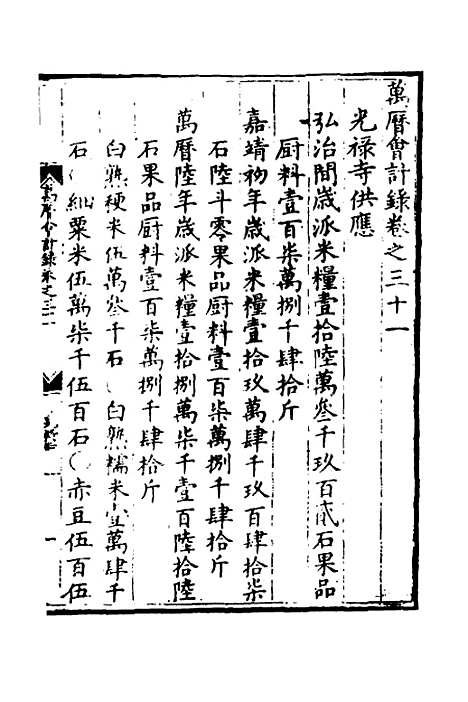 萬曆會計録卷之三十一
光祿寺供應
弘治間歲派米糧壹拾陸萬叁千玖百貳石果品
厨料壹百柒萬捌千肆拾斤
嘉靖初年歲派米糧壹拾玖萬肆千玖百肆拾柒
石陸斗零果品厨料壹百柒萬捌千肆拾斤
萬曆陸年歲派米糧壹拾捌萬柒千壹百陸拾陸
石果品厨料壹百柒萬捌千肆拾斤
白熟粳米伍萬叁千石 白熟糯米壹萬肆千
石 細粟米伍萬柒千伍百石 赤豆伍百伍
萬曆會計録卷之三十一
一